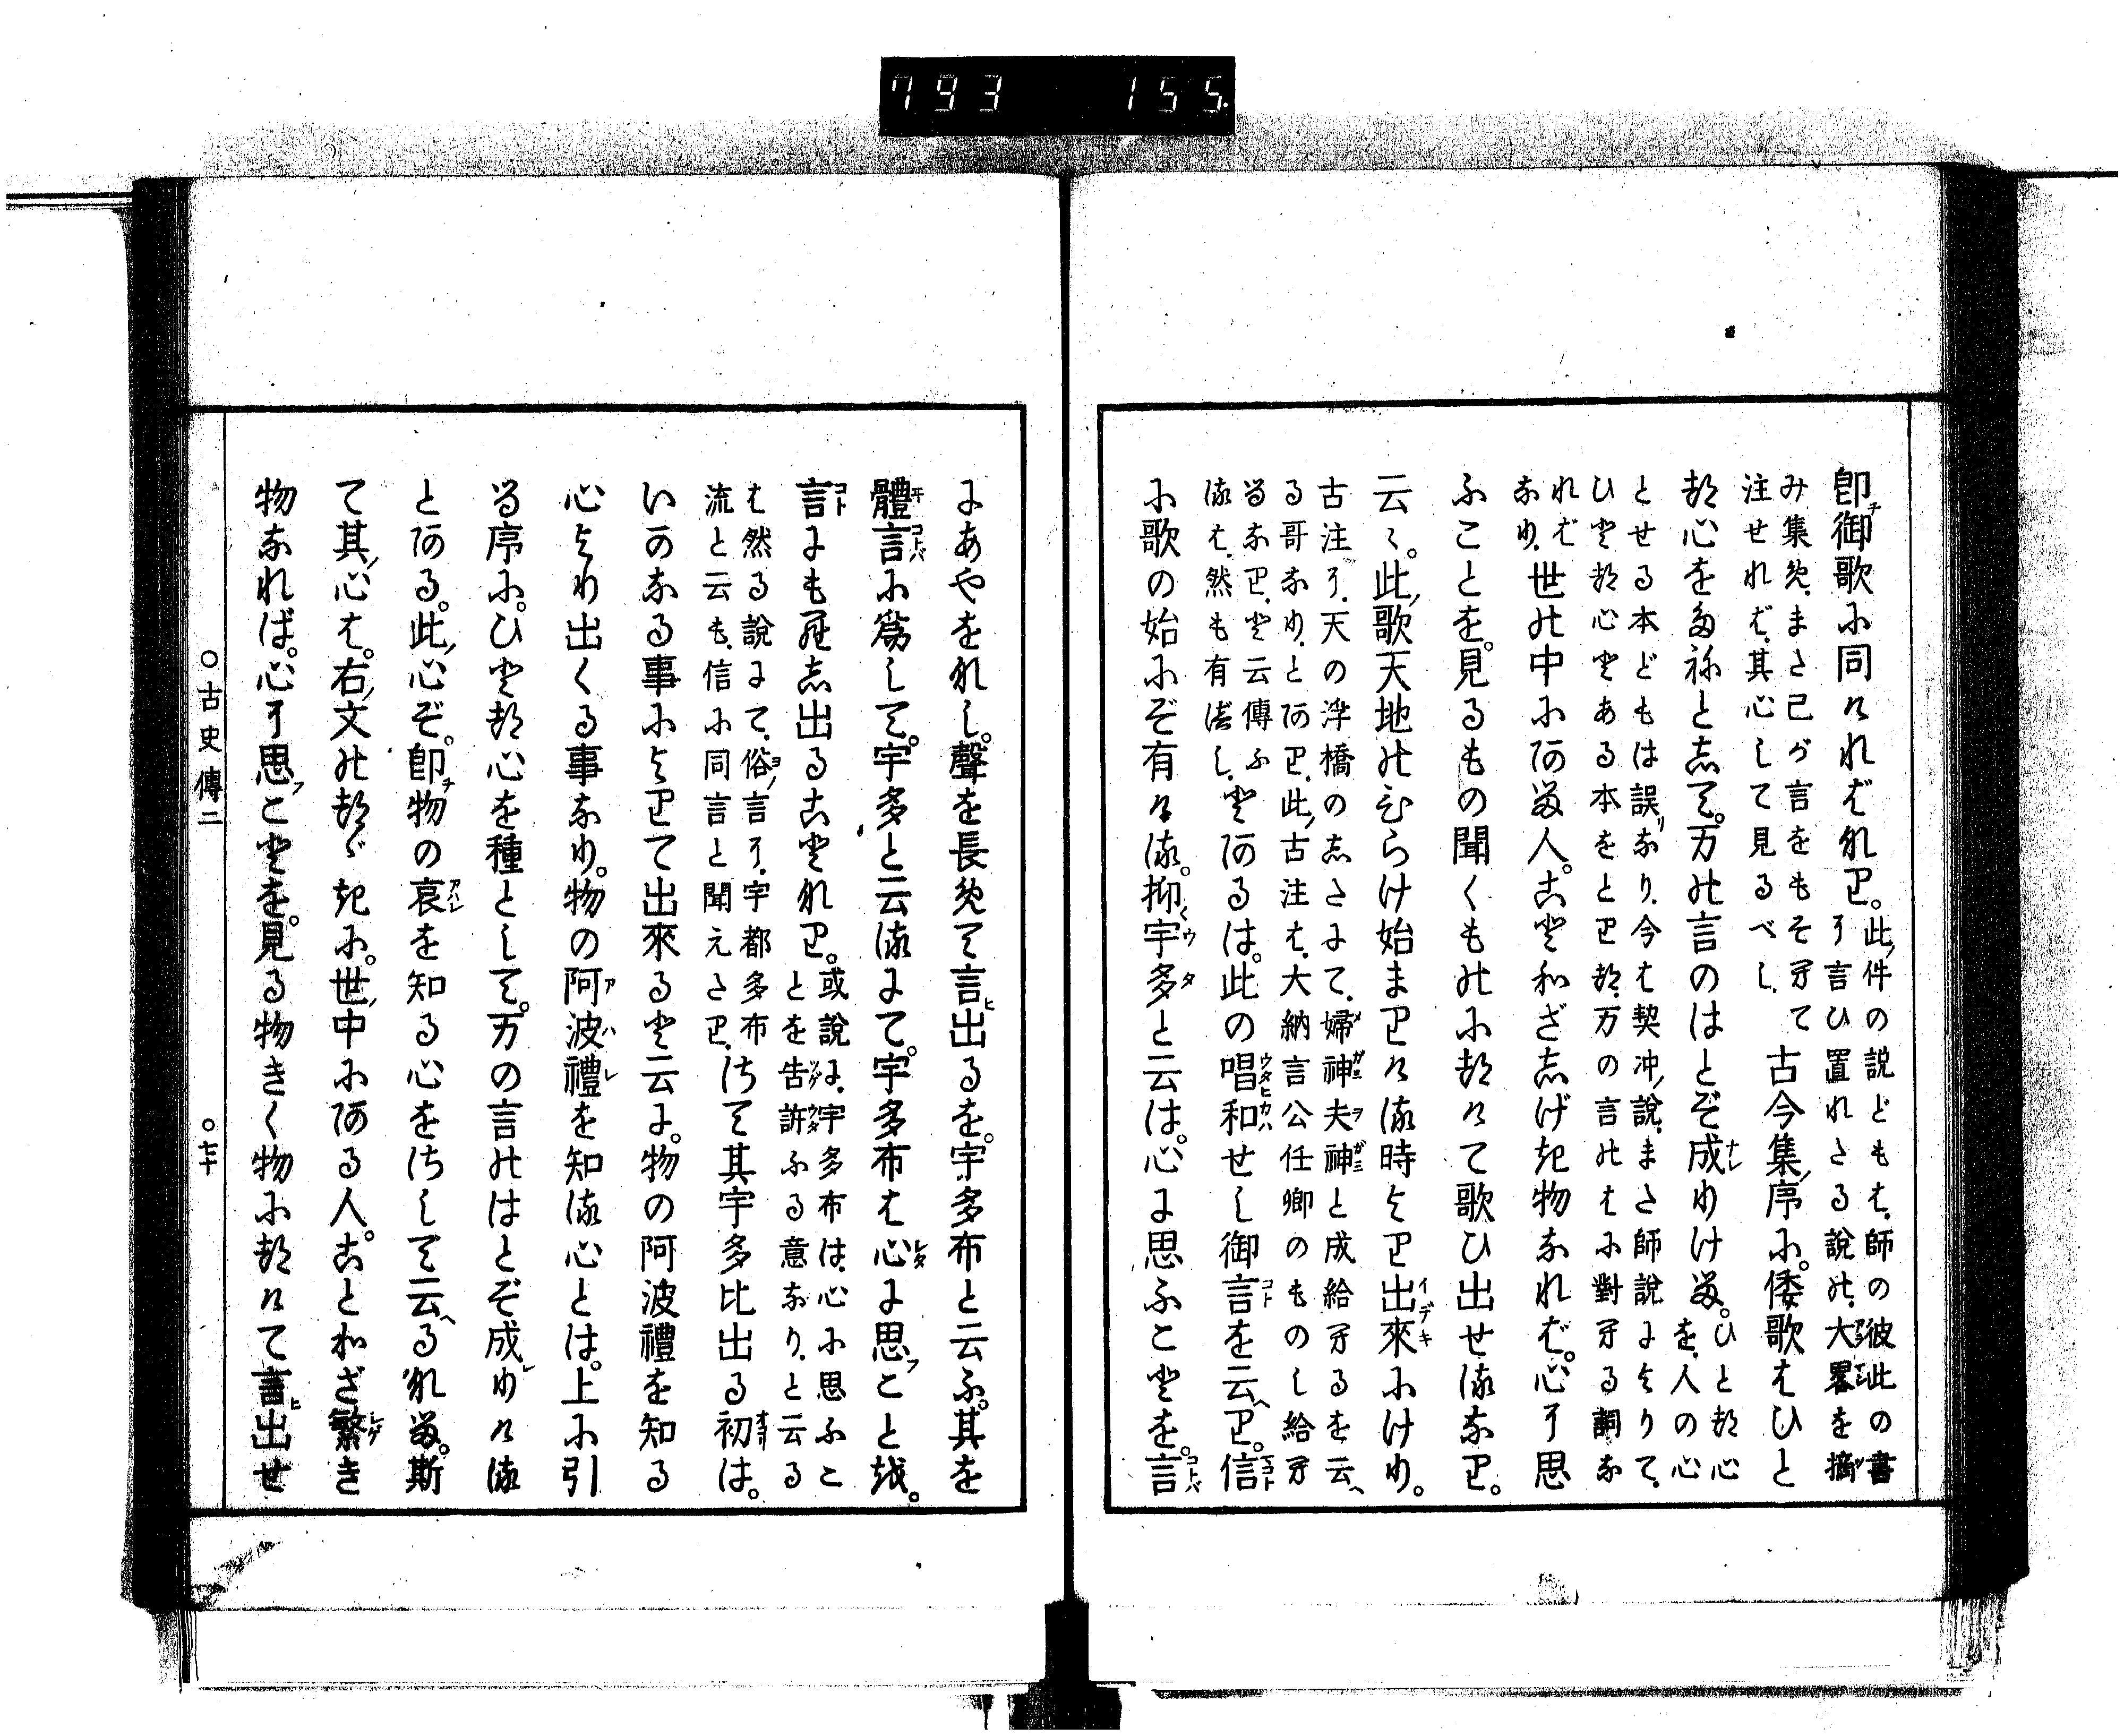 793 155
即御歌に同ければなり。此ノ件の説どもは、師の彼此の書
に言ひ置れたる説の、大畧を摘
み集め、また己が言をもそへて
注せれば、其心して見るべし、
古今集ノ序に。倭歌はひと
の心をたねとして。万の言のはとぞ成りける。ひとの心
を、人の心
とせる本どもは誤リなり、今は契沖ノ説、また師説によりて、
ひとの心とある本をとりつ、万の言のはに對へる詞な
ればなり、
世の中にある人。ことわざしげき物なれば。心に思
ふことを。見るもの聞くものにつけて歌ひ出せるなり。
云々。此ノ歌天地のひらけ始まりける時より出來にけり。
古注に、天の浮橋のしたにて、婦神夫神と成給へるを云ヘ
る哥なり、とあり、此ノ古注は、大納言公任卿のものし給へ
るなり、と云傳ふ、とあるは。此の唱和せし御言を云ヘり。信
るは、然も有べし、
に歌の始にぞ有ける。抑宇多と云は。心に思ふことを。言
にあやをなし。聲を長めて言出るを。宇多布と云ふ。其を
體言に爲して。宇多と云るにて。宇多布は心に思フことを。
言にも出し出ることなり。或説に、宇多布は、心に思ふこ
とを告許ふる意なり、と云る
は然る説にて、俗ノ言に、宇都多布
流と云も、信に同言と聞えたり、
さて其宇多比出る初は。
いかなる事によりて出來ると云に。物の阿波禮を知る
心より出くる事なり。物の阿波禮を知る心とは。上に引
る序に。ひとの心を種として。万の言のはとぞ成レりける
とある。此ノ心ぞ。即チ物の哀を知る心をさして云ヘるなる。斯
て其ノ心は。右ノ文のつゞきに。世ノ中にある人。ことわざ繁き
物なれば。心に思フことを。見る物きく物につけて言出せ
○古史傳二 ○七十